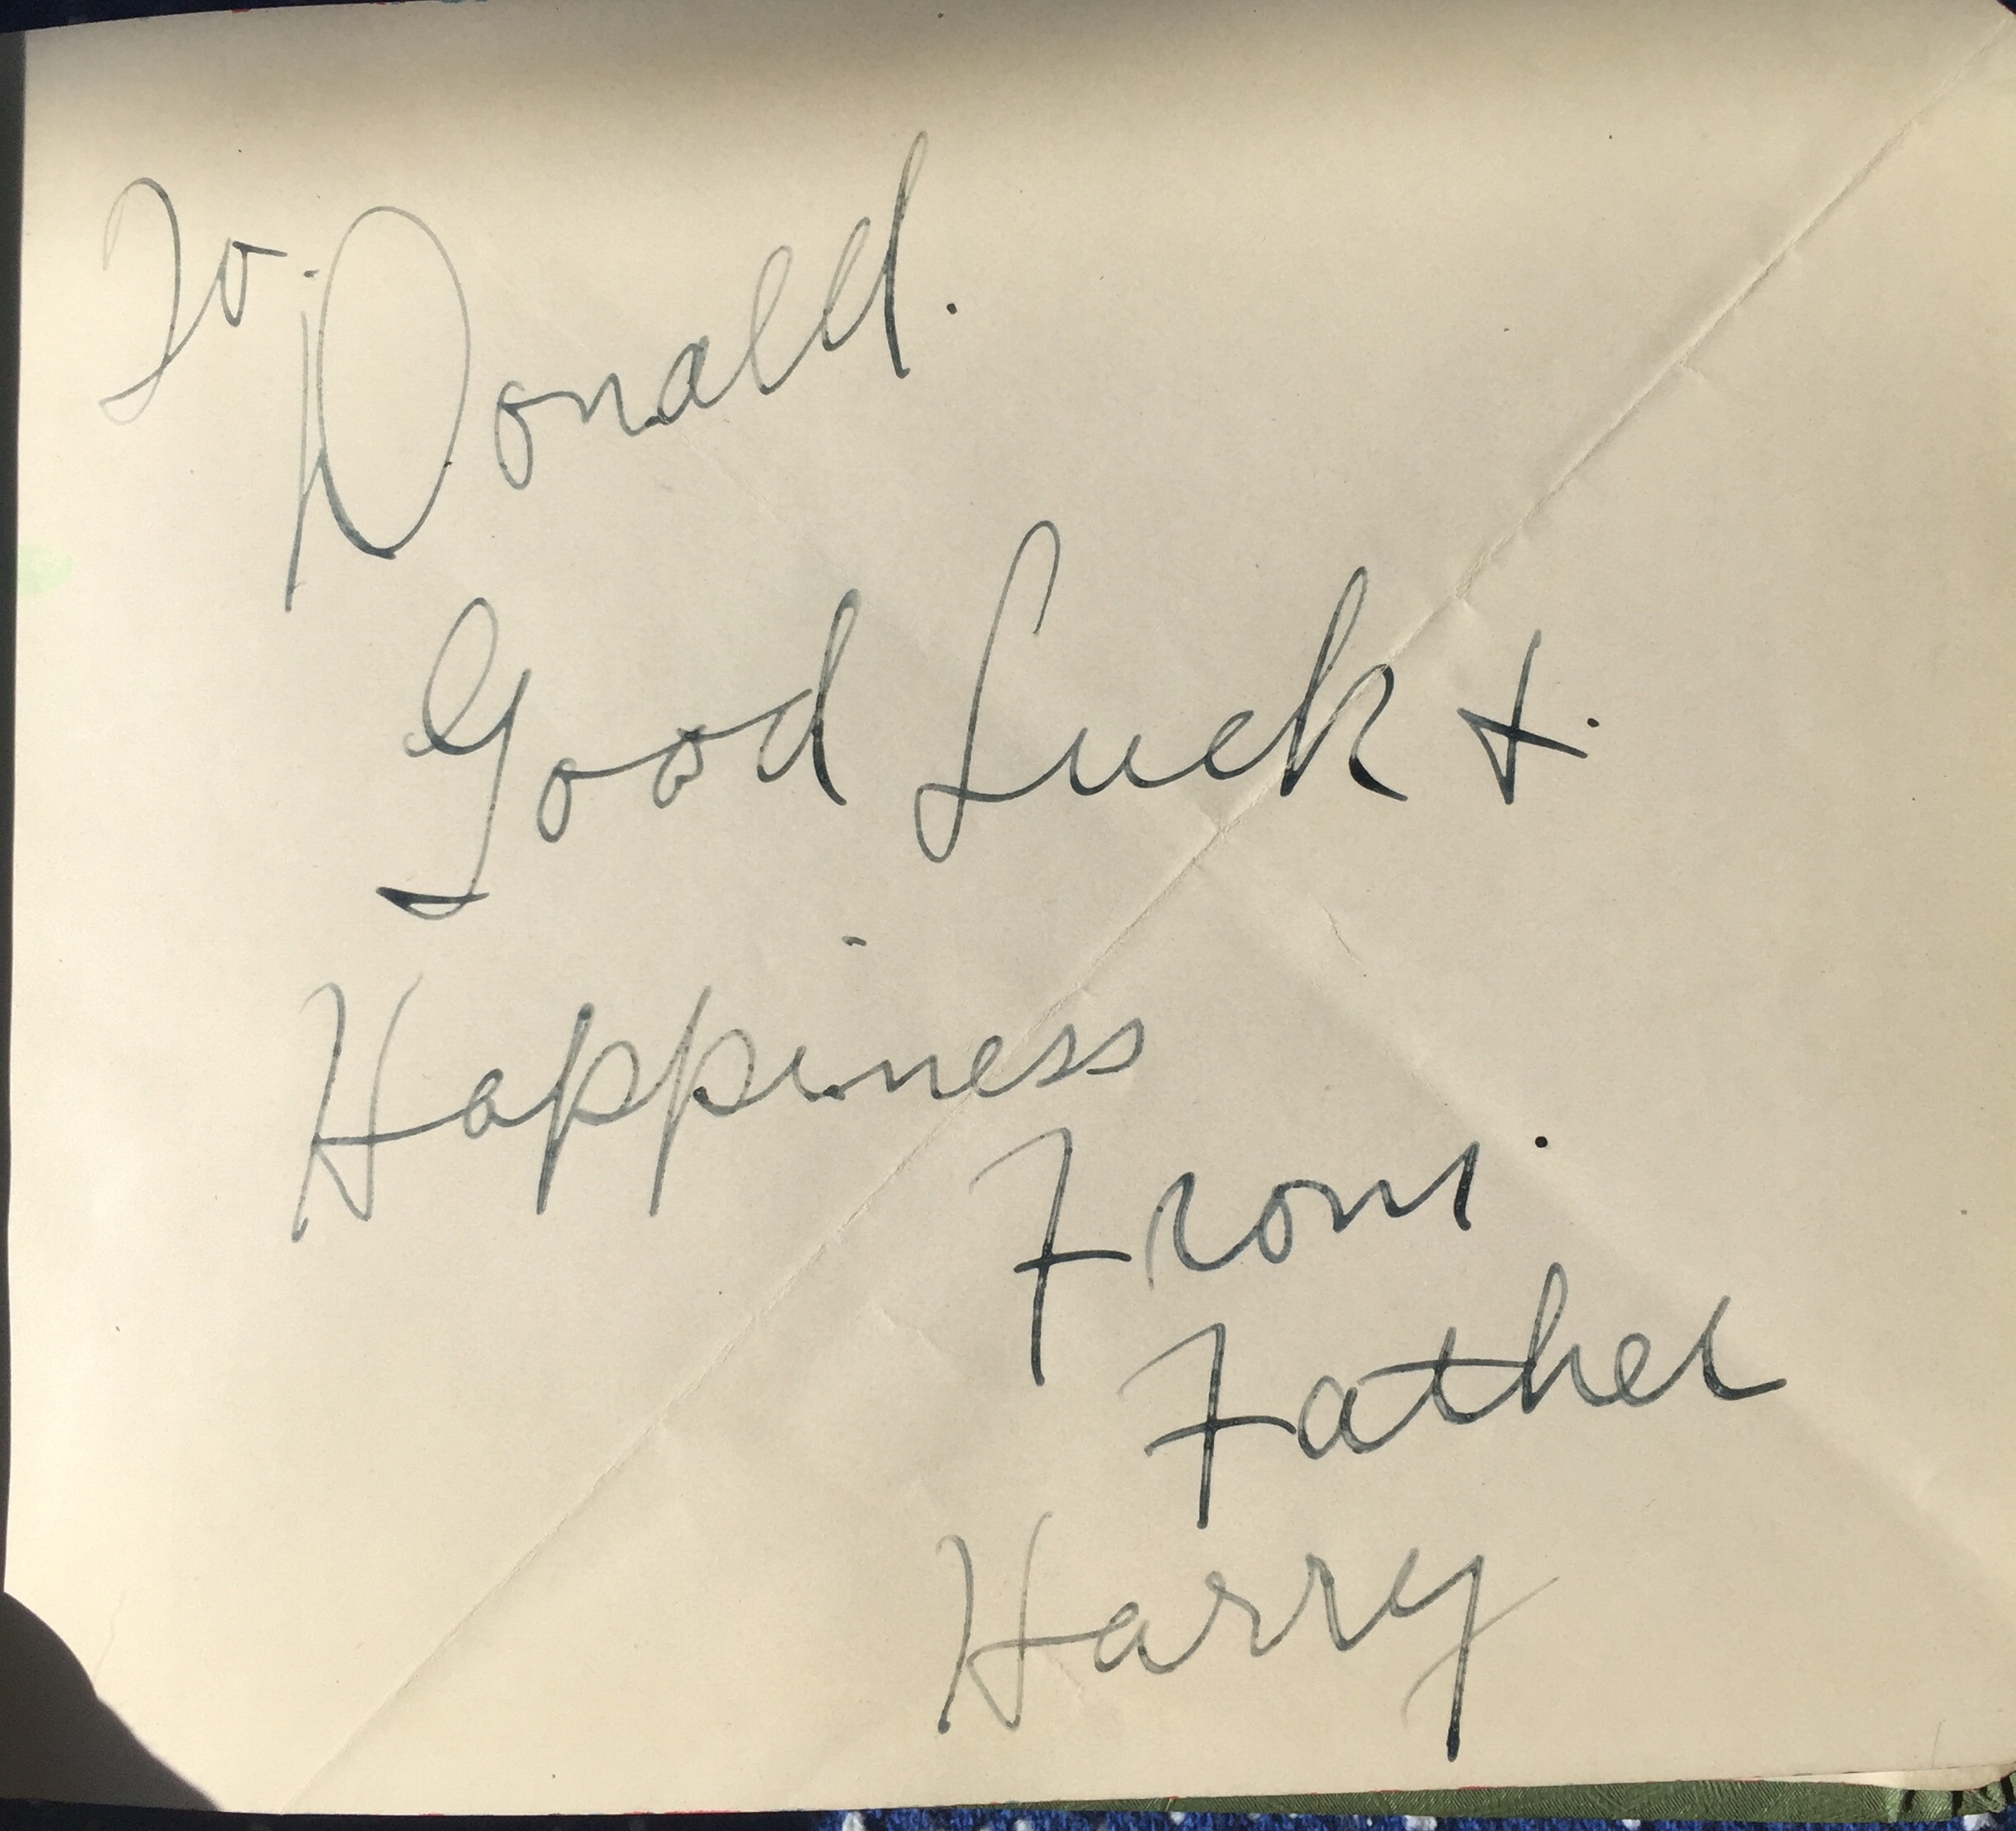 To.
Donald.
Good Luck +.
Happiness
From
Father
Harry